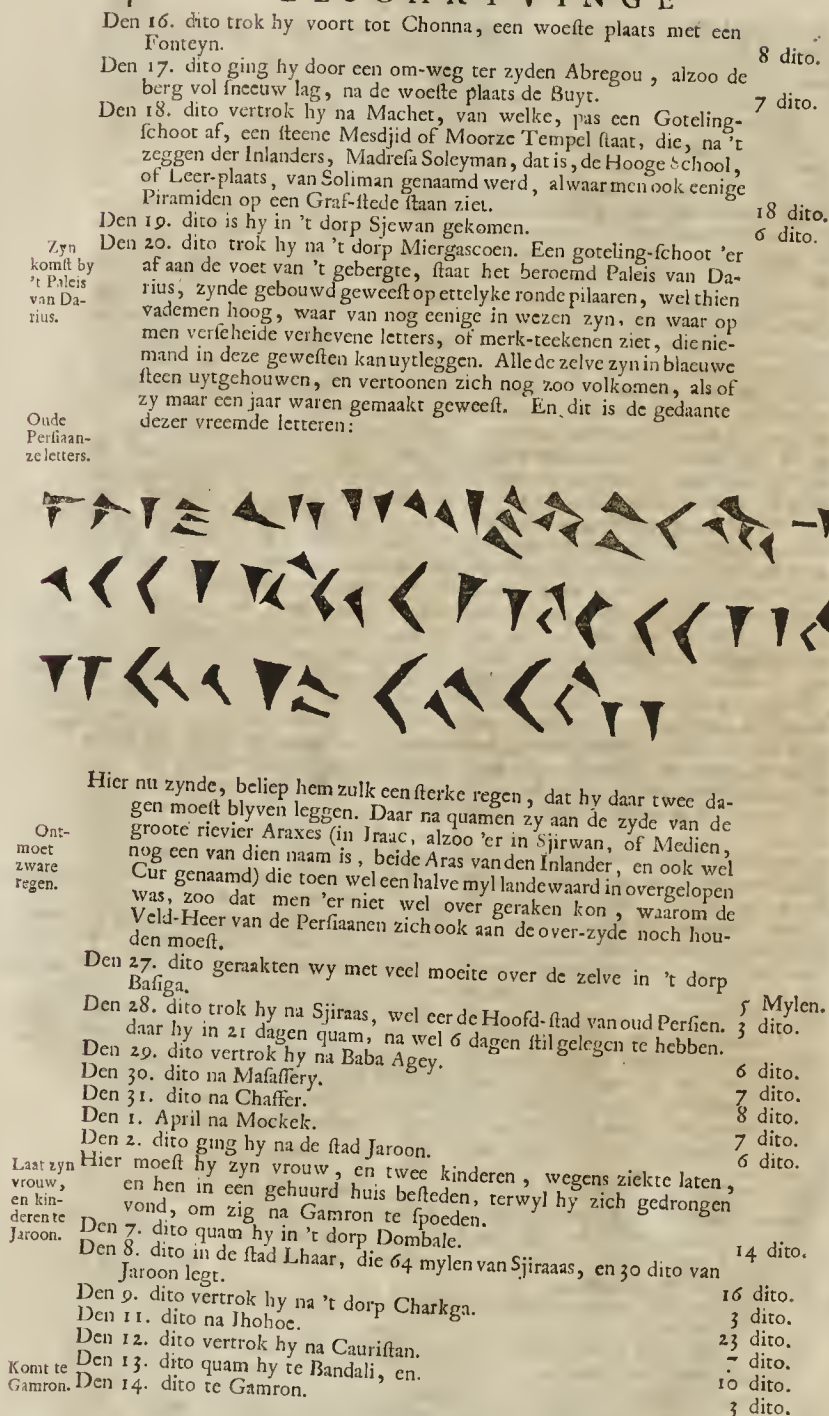 Den 16. dito trok hy voort tot Chonna, een woeſte plaats met een
Fonteyn. 8 dito.
Den 17. dito ging hy door een om-weg ter zyden Abregou, alzoo de
berg vol ſneeuw lag, na de woeſte plaats de Buyt. 7 dito.
Den 18. dito vertrok hy na Machet, van welke, pas een Goteling-
ſchoot af, een ſteene Mesdjid of Moorze Tempel ſtaat, die, na 't
zeggen der Inlanders, Madreſa Soleyman, dat is, de Hooge School,
of Leer-plaats, van Soliman genaamd werd, alwaar men ook eenige
Piramiden op een Graf-ſtede ſtaan ziet. 18 dito.
Den 19. dito is hy in 't dorp Sjewan gekomen. 6 dito.
Zyn
komſt by
't Paleis
van Da-
rius.
Den 20. dito trok hy na 't dorp Miergascoen. Een goteling-ſchoot 'er
af aan de voet van 't gebergte, ſtaat het beroemd Paleis van Da-
rius, zynde gebouwd geweeſt op ettelyke ronde pilaaren, wel thien
vademen hoog, waar van nog eenige in wezen zyn, en waar op
men verſcheide verhevene letters, of merk-teekenen ziet, die nie-
mand in deze geweſten kan uytleggen. Alle de zelve zyn in blaeuwe
ſteen uytgehouwen, en vertoonen zich nog zoo volkomen, als of
zy maar een jaar waren gemaakt geweeſt. En dit is de gedaante
dezer vreemde letteren:
Oude
Perſiaan-
ze letters.
Hier nu zynde, beliep hem zulk een ſterke regen, dat hy daar twee da-
gen moeſt blyven leggen. Daar na quamen zy aan de zyde van de
groote rievier Araxes (in Iraac, alzoo 'er in Sjirwan, of Medien,
nog een van dien naam is, beide Aras van den Inlander, en ook wel
Cur genaamd) die toen wel een halve myl landewaard in overgelopen
was, zoo dat men 'er niet wel over geraken kon, waarom de
Veld-Heer van de Perſiaanen zich ook aan de over-zyde noch hou-
den moeſt.
Ont-
moet
zware
regen.
Den 27. dito geraakten wy met veel moeite over de zelve in 't dorp
Baſiga. 5 Mylen.
Den 28. dito trok hy na Sjiraas, wel eer de Hoofd-ſtad van oud Perſien. 3 dito.
daar hy in 21 dagen quam, na wel 6 dagen ſtil gelegen te hebben.
Den 29. dito vertrok hy na Baba Agey. 6 dito.
Den 30. dito na Maſaffery. 7 dito.
Den 31. dito na Chaffer. 8 dito.
Den 1. April na Mockek. 7 dito.
Den 2. dito ging hy na de ſtad Jaroon. 6 dito.
Laat zyn
vrouw,
en kin-
deren te
Jaroon.
Hier moeſt hy zyn vrouw, en twee kinderen, wegens ziekte laten,
en hen in een gehuurd huis beſteden, terwyl hy zich gedrongen
vond, om zig na Gamron te ſpoeden.
Den 7. dito quam hy in 't dorp Dombale. 14 dito.
Den 8. dito in de ſtad Lhaar, die 64 mylen van Sjiraaas, en 30 dito van
Jaroon legt. 16 dito.
Den 9. dito vertrok hy na 't dorp Charkga. 3 dito.
Den 11. dito na Jhohoe. 23 dito.
Den 12. dito vertrok hy na Cauriſtan. 7 dito.
Den 13. dito quam hy te Bandali, en. 10 dito.
Komt te
Gamron.
Den 14. dito te Gamron. 3 dito.